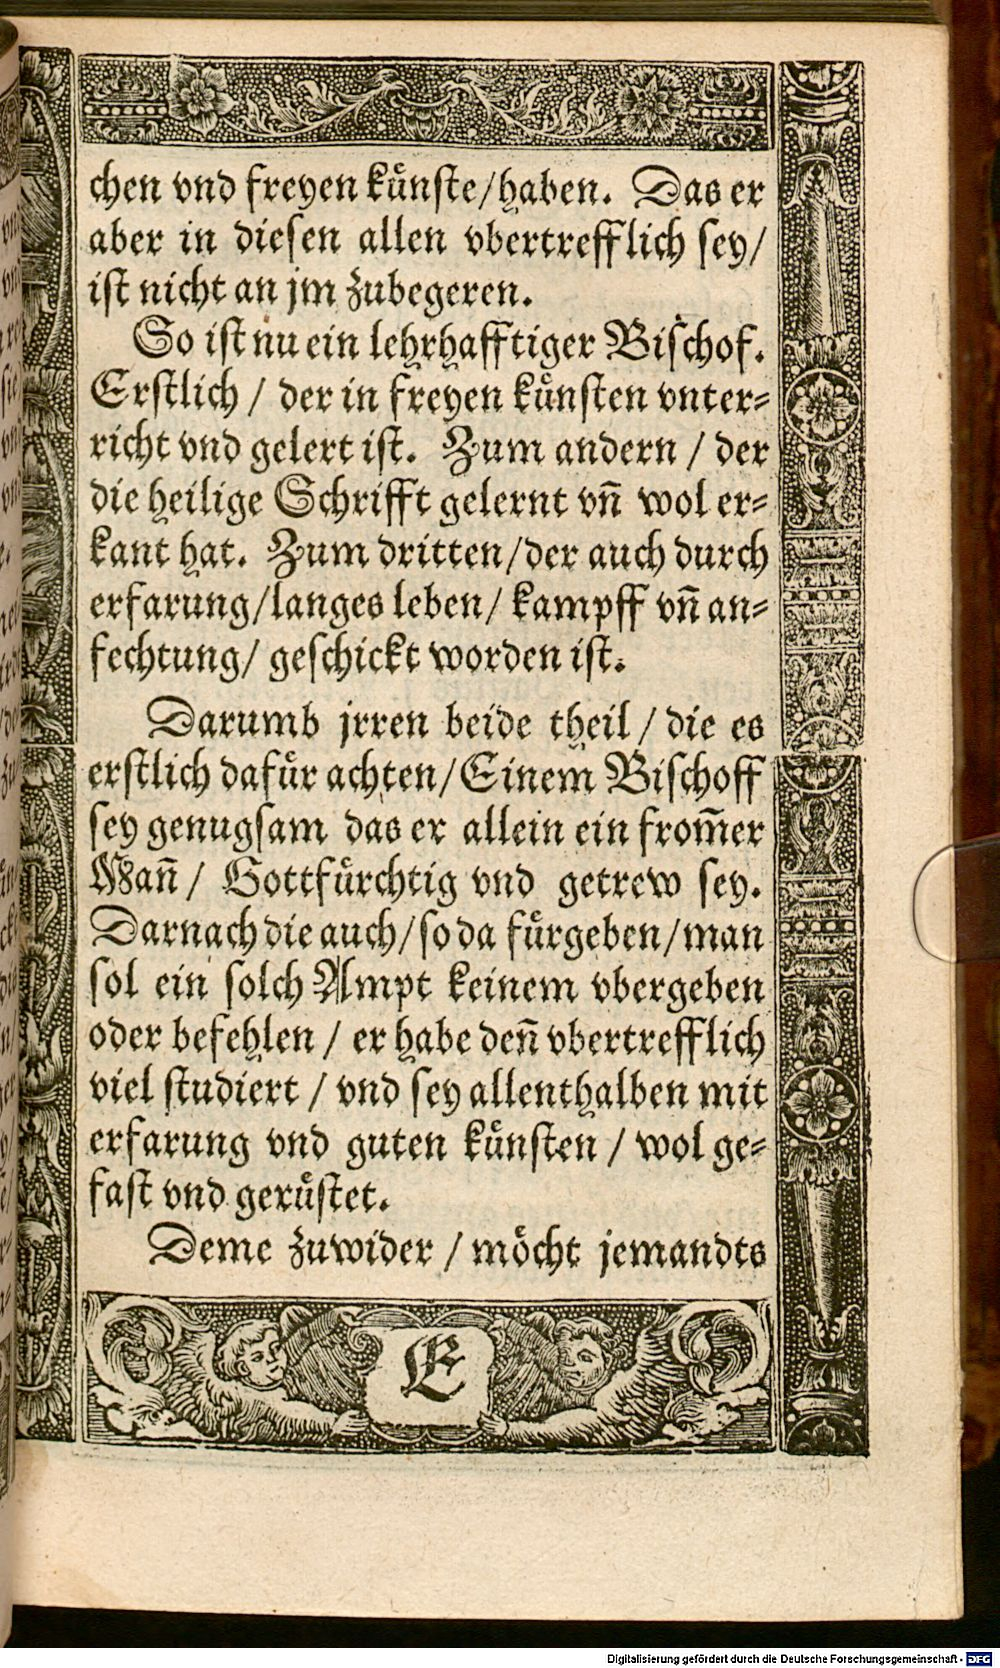 chen vnd freyen kuͤnste/haben. Das er
aber in diesen allen vbertrefflich sey/
ist nicht an jm zubegeren.
So ist nu ein lehrhafftiger Bischof.
Erstlich / der in freyen kuͤnsten vnter-
richt vnd gelert ist. Zum andern / der
die heilige Schrifft gelernt vn̄ wol er-
kant hat. Zum dritten/der auch durch
erfarung/langes leben/ kampff vn̄ an-
fechtung/ geschickt worden ist.
Darumb jrren beide theil / die es
erstlich dafuͤr achten/Einem Bischoff
sey genugsam das er allein ein from̄er
Man̄ / Gottfuͤrchtig vnd getrew sey.
Darnach die auch/so da fuͤrgeben/man
sol ein solch Ampt keinem vbergeben
oder befehlen / er habe den̄ vbertrefflich
viel studiert / vnd sey allenthalben mit
erfarung vnd guten kuͤnsten / wol ge-
fast vnd geruͤstet.
Deme zuwider / moͤcht jemandts
E
Digitalisierung gefördert durch die Deutsche Forschungsgemeinschaft - DFG